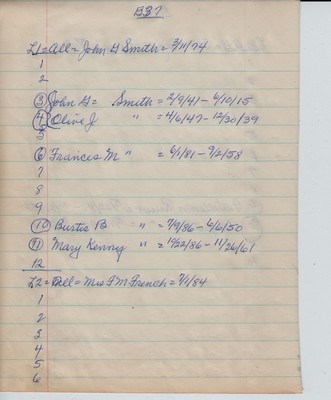 B37
L1=All=John G Smith=3/11/74
1
2
3 John G= Smith = 2/9/41-6/10/15
4 Olive J " = 4/6/47-12/30/39
5
6 Frances M " = 6/1/81-9/2/58
7
8
9
10 Burtis B " = 7/9/86-6/6/50
11 Mary Kenny " = 12/22/86-11/26/61
12
L2=Bell=Mrs F M French=7/1/84
1
2
3
4
5
6